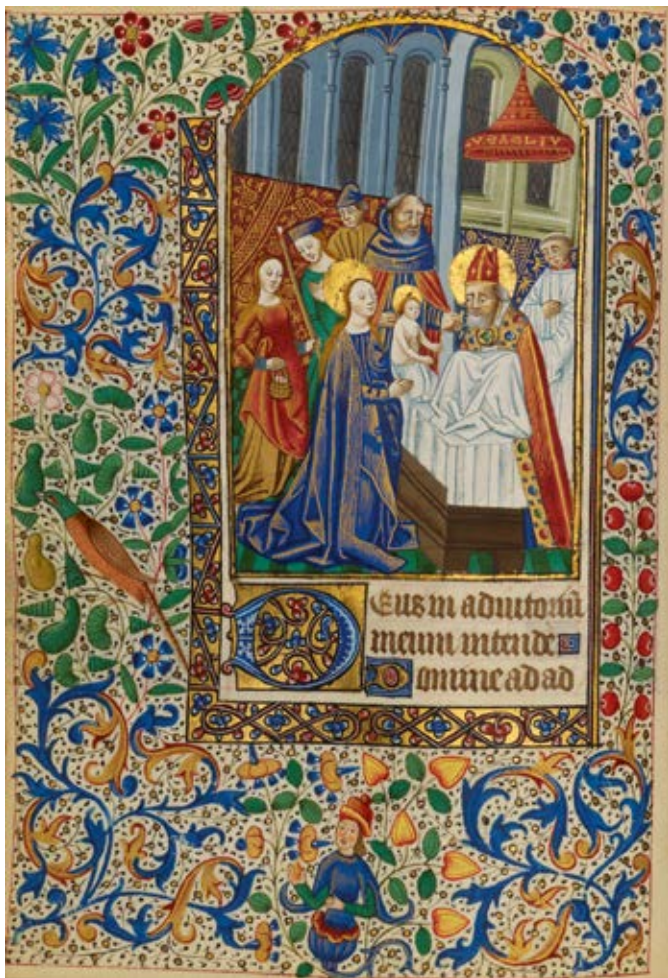 Deus in adiutoriū
meum intende
Domine ad ad